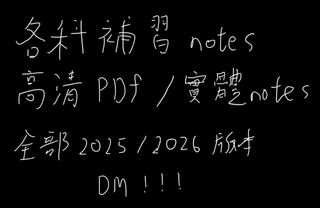 各科補習 notes
高清 PDf / 實體notes
全部 2025 / 2026 版本
DM ! ! !